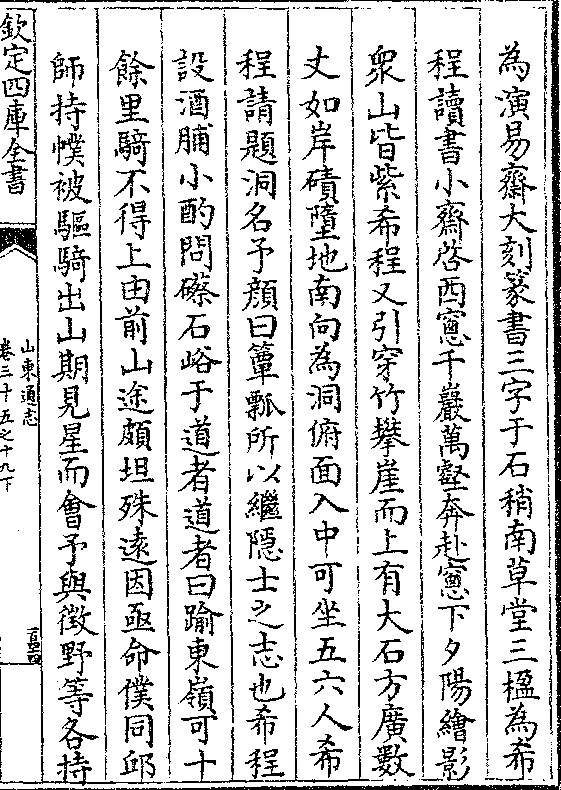 為演易齋大刻篆書三字于石稍南草堂三楹為希
程讀書小齋啓西窻千巖萬壑奔赴窻下夕陽繪影
衆山皆紫希程又引穿竹攀崖而上有大石方廣數
丈如岸磧墮地南向為洞俯面入中可坐五六人希
程請題洞名予顔曰簞瓢所以繼隠士之志也希程
設酒脯小酌問礤石峪于道者道者曰踰東嶺可十
餘里騎不得上由前山途頗坦殊遠因亟命僕同邱
師持幞被驅騎出山期見星而會予與徴野等各持
欽定四庫全書
山東通志
卷三十五之十九下